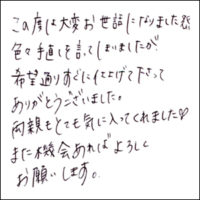 この度は大変お世話になりました
色々手直しを言ってしまいましたが
希望通りすぐに仕上げて下さって
ありがとうございました。
両親もとても気に入ってくれました♡
また機会あればよろしく
お願いします。